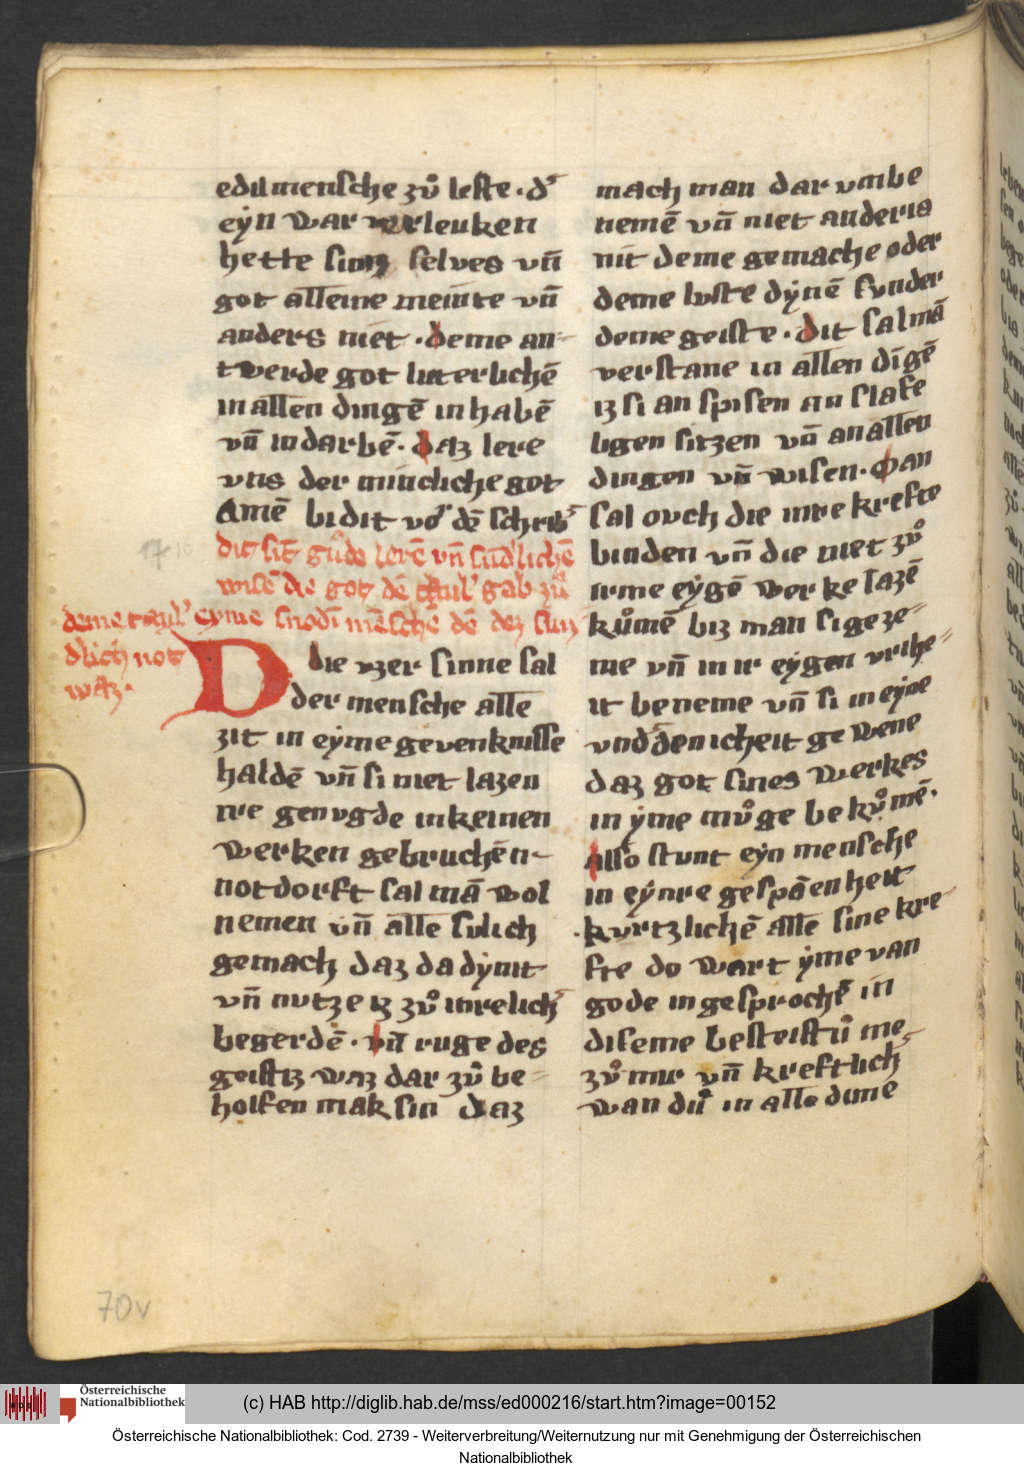 edilmensche zů leste · d'
eyn war verleuken
hette sinz selves vn̄
got alleine meinte vn̄
anders niet · deme an-
twerde got luterlichē
in allen dingē in habē
vn̄ in darbē · daz lere
vns der minnicliche got
Amē bidit vo' dē schrib'
dit sīt gůde lerē vn̄ sūd'lichē
wisē die got dē taul' gab zů
deme taul' eyme snodī mēsche dē dez sun
dlich not
waz ·
Die vzer sinne sal
der mensche alle
zit in eyme gevenknisse
haldē vn̄ si niet lazen
nie genvgde in keinen
werken gebruchē n-
notdorft sal mā wol
nemen vn̄ alle sulich
gemach daz da dymt
vn̄ nutze iz zů inrelich'
begerdē · vn̄ ruge des
geistz waz dar zů be-
holfen mak sin daz
mach man dar vmbe
nemē vn̄ niet anderis
nit deme gemache oder
deme luste dynē sunder
deme geiste · dit sal mā
verstane in allen dīgē
iz si an spisen an slafe
ligen sitzen vn̄ an allen
dingen vn̄ wisen · Man
sal ouch die inre krefte
binden vn̄ die niet zů
irme eygē werke lazē
kůmē biz man si geze-
me vn̄ in ir eygen vrihe-
it beneme vn̄ si in eyne
vnddenicheit gewene
daz got sines werkes
in yme můge bekůmē ·
Also stunt eyn mensche
in eynre gespāenheit
kvrtzlichē alle sine kre
fte do wart yme van
gode in gesprochē in
diseme besteistů me
zů mir vn̄ kreftlich'
wan dů in alle dine
70v
(c) HAB http://diglib.hab.de/mss/ed000216/start.htm?image=00152
Österreichische
Nationalbibliothek
Österreichische Nationalbibliothek: Cod. 2739 - Weiterverbreitung/Weiternutzung nur mit Genehmigung der Österreichischen
Nationalbibliothek